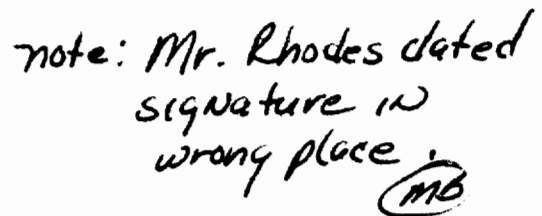 note: Mr. Rhodes dated
signature in
wrong place.
MB